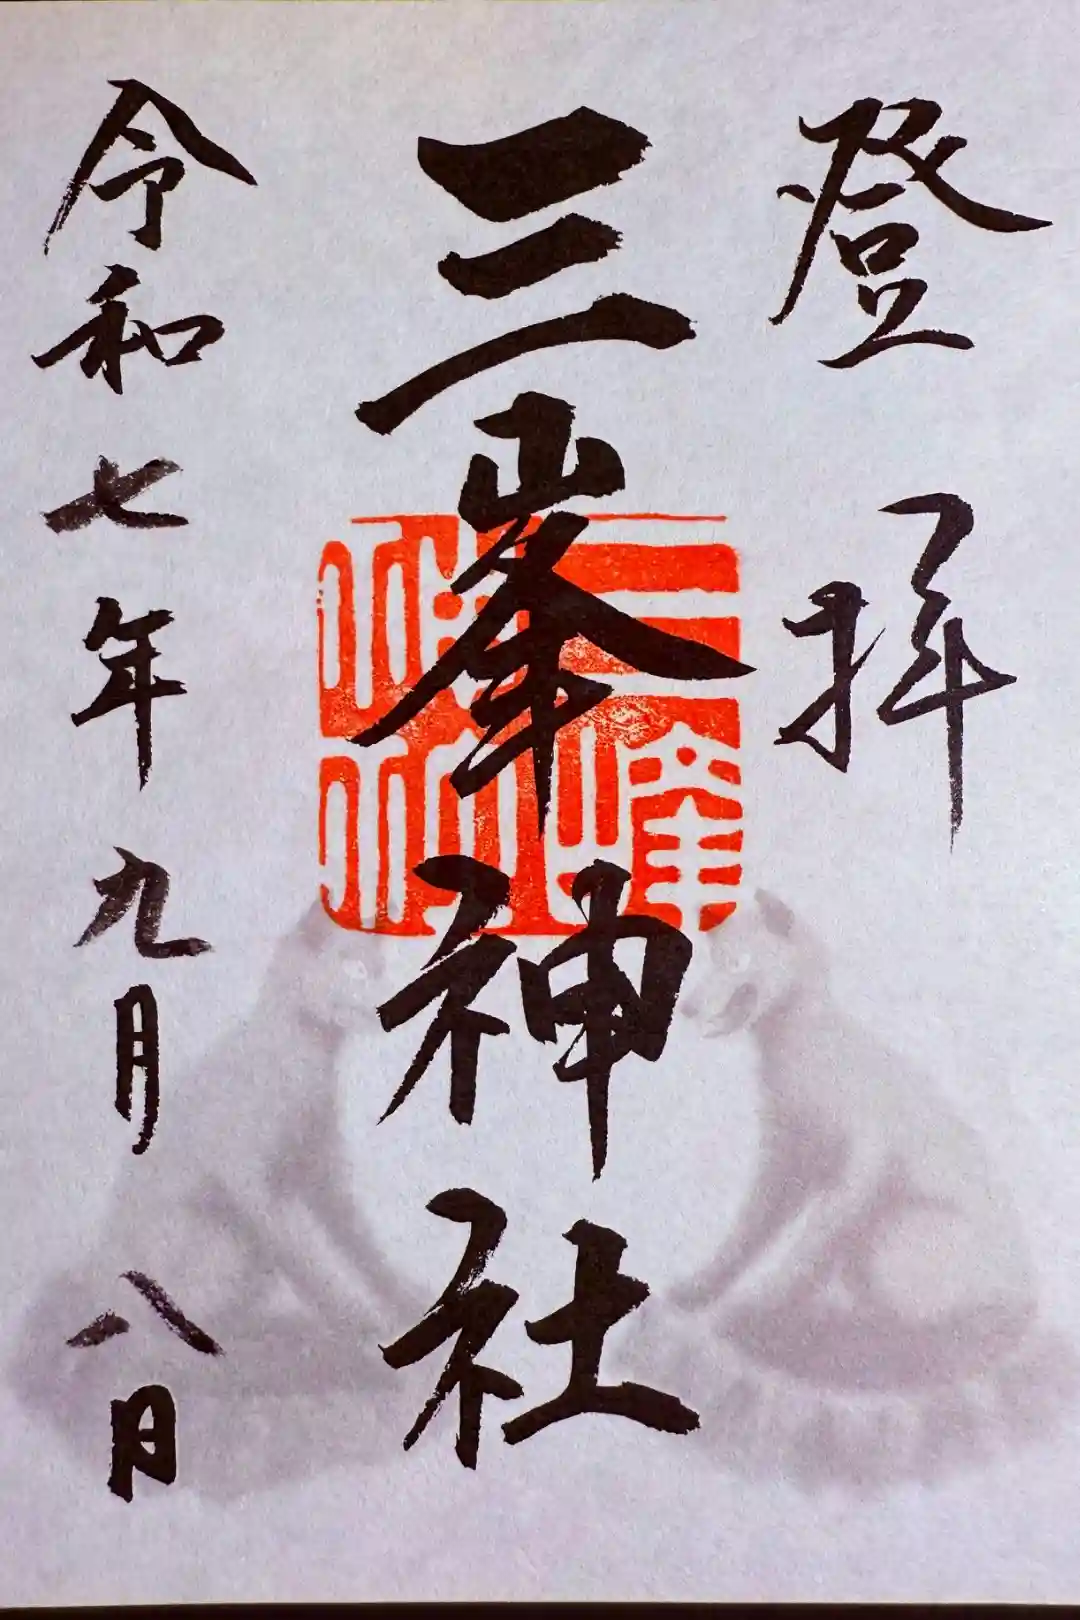 登拝
三峯神社
三峰神社
令和七年九月八日